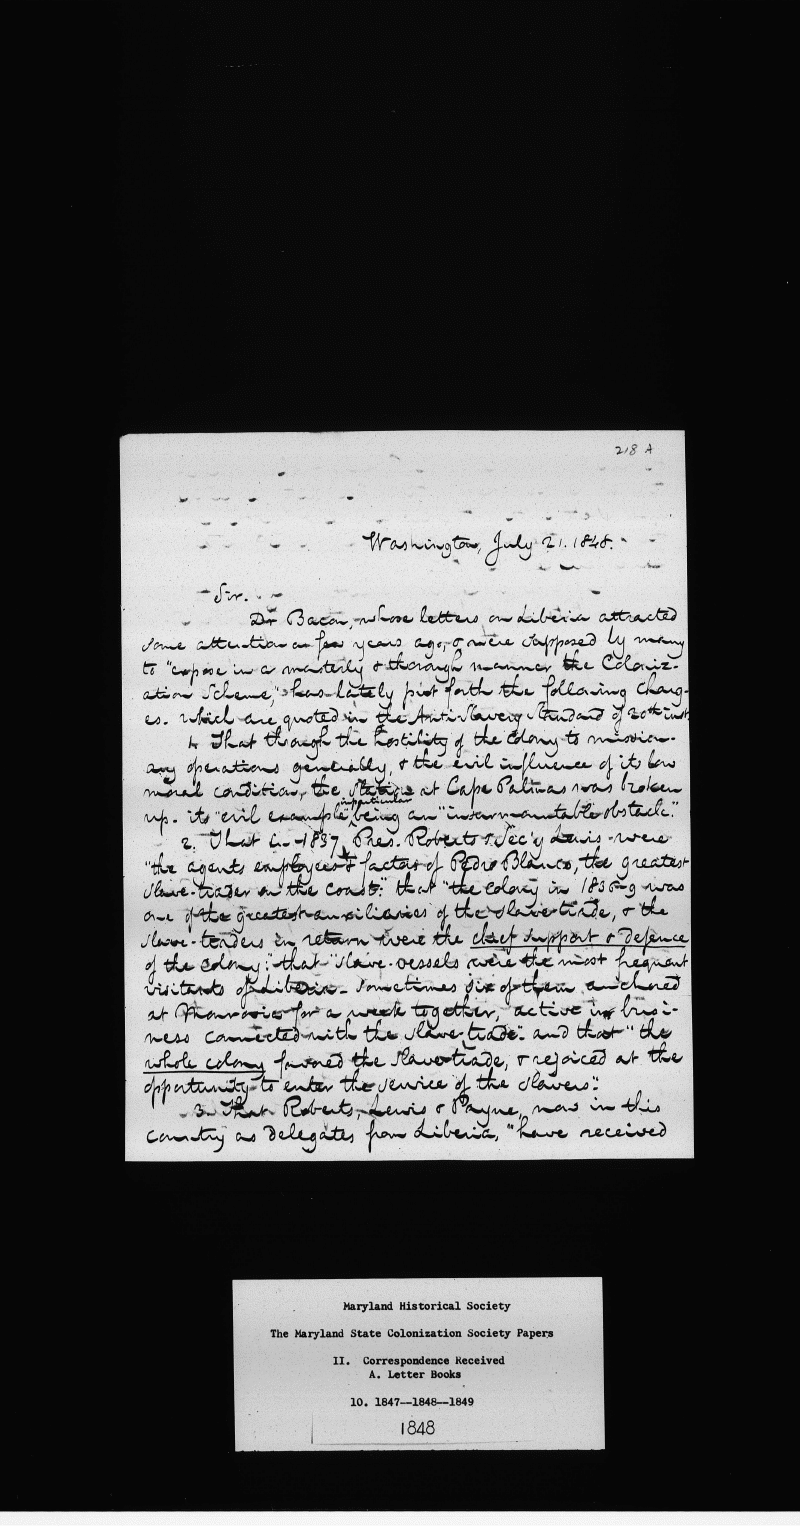 218 A
Washington, July 21. 1848.
Sir.
Dr Bacon, whose letters on Liberia attracted
some attention a few years ago, & were supposed by many
to "expose in a masterly & thorough manner the Coloniz-
ation Scheme," has lately put forth the following charg-
es. which are quoted in the Anti-Slavery Standard of 20th inst.
1. That through the hostility of the Colony to mission-
ary operations generally, & the evil influence of its low
moral condition, the station at Cape Palmas was broken
up. its "evil example" in particular being an "insurmountable obstacle."
2. That in 1837, Pres. Roberts & Sec'y Lewis were
"the agents employees & factors of Pedro Blanco, the greatest
slave-trader on the coast:" that "the colony in 1836-9 was
one of the greatest auxiliaries of the slave trade, & the
slave-traders in return were the chief support & defence
of the colony:" that "slave-vessels were the most frequent
visitants of Liberia - sometimes six of them anchored
at Monrovia for a week together, active in busi-
ness connected with the slave trade." and that "the
whole colony favored the slave trade, & rejoiced at the
opportunity to enter the service of the slavers."
3. That Roberts, Lewis & Payne, now in this
country as delegates from Liberia, "have received
Maryland Historical Society
The Maryland State Colonization Society Papers
II. Correspondence Received
A. Letter Books
10. 1847--1848--1849
1848